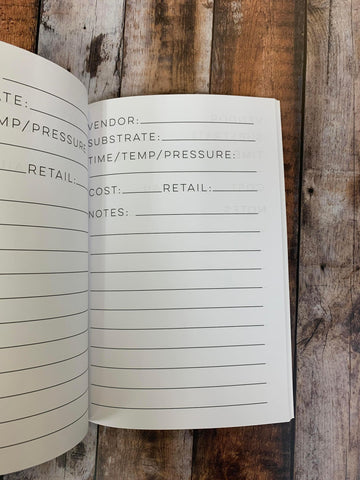 ATE:
MP/PRESSURE:
RETAIL:
VENDOR:
SUBSTRATE:
TIME/TEMP/PRESSURE:
COST: RETAIL:
NOTES: